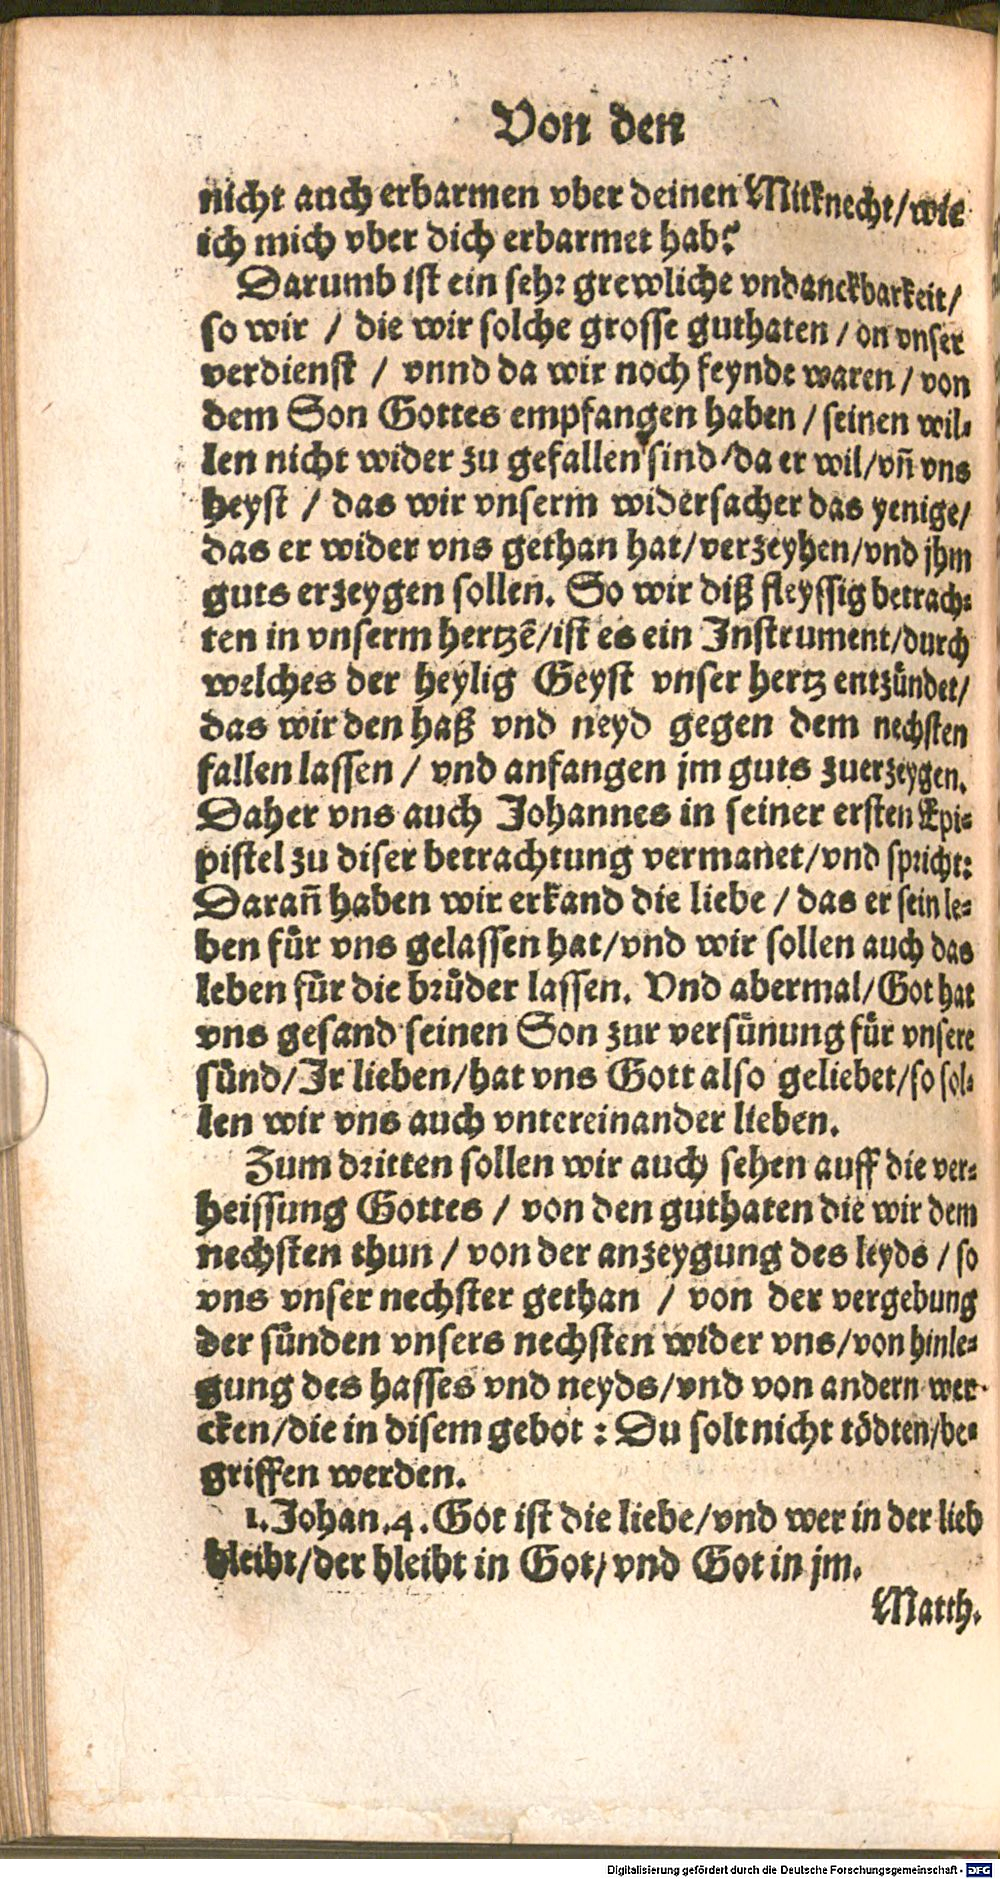 Von den
nicht auch erbarmen vber deinen Mitknecht/wie
ich mich vber dich erbarmet hab?
Darumb ist ein sehr grewliche vndanckbarkeit/
so wir / die wir solche grosse guthaten / on vnser
verdienst / vnnd da wir noch feynde waren / von
dem Son Gottes empfangen haben / seinen wil-
len nicht wider zu gefallen sind/da er wil/vñ vns
heyst / das wir vnserm widersacher das yenige/
das er wider vns gethan hat/verzeyhen/vnd jhm
guts erzeygen sollen. So wir diß fleyssig betrach-
ten in vnserm hertzẽ/ist es ein Instrument/durch
welches der heylig Geyst vnser hertz entzündet/
das wir den haß vnd neyd gegen dem nechsten
fallen lassen / vnd anfangen jm guts zuerzeygen.
Daher vns auch Johannes in seiner ersten Epi-
pistel zu diser betrachtung vermanet/vnd spricht:
Darañ haben wir erkand die liebe / das er sein le-
ben für vns gelassen hat/vnd wir sollen auch das
leben für die brüder lassen. Vnd abermal/Got hat
vns gesand seinen Son zur versünung für vnsere
sünd/Jr lieben/hat vns Gott also geliebet/so sol-
len wir vns auch vntereinander lieben.
Zum dritten sollen wir auch sehen auff die ver-
heissung Gottes / von den guthaten die wir dem
nechsten thun / von der anzeygung des leyds / so
vns vnser nechster gethan / von der vergebung
der sünden vnsers nechsten wider vns/von hinle-
gung des hasses vnd neyds/vnd von andern wer-
cken/die in disem gebot : Du solt nicht tödten/be-
griffen werden.
1. Johan. 4. Got ist die liebe/vnd wer in der lieb
bleibt/der bleibt in Got/ vnd Got in jm.
Matth.
Digitalisierung gefördert durch die Deutsche Forschungsgemeinschaft - DFG